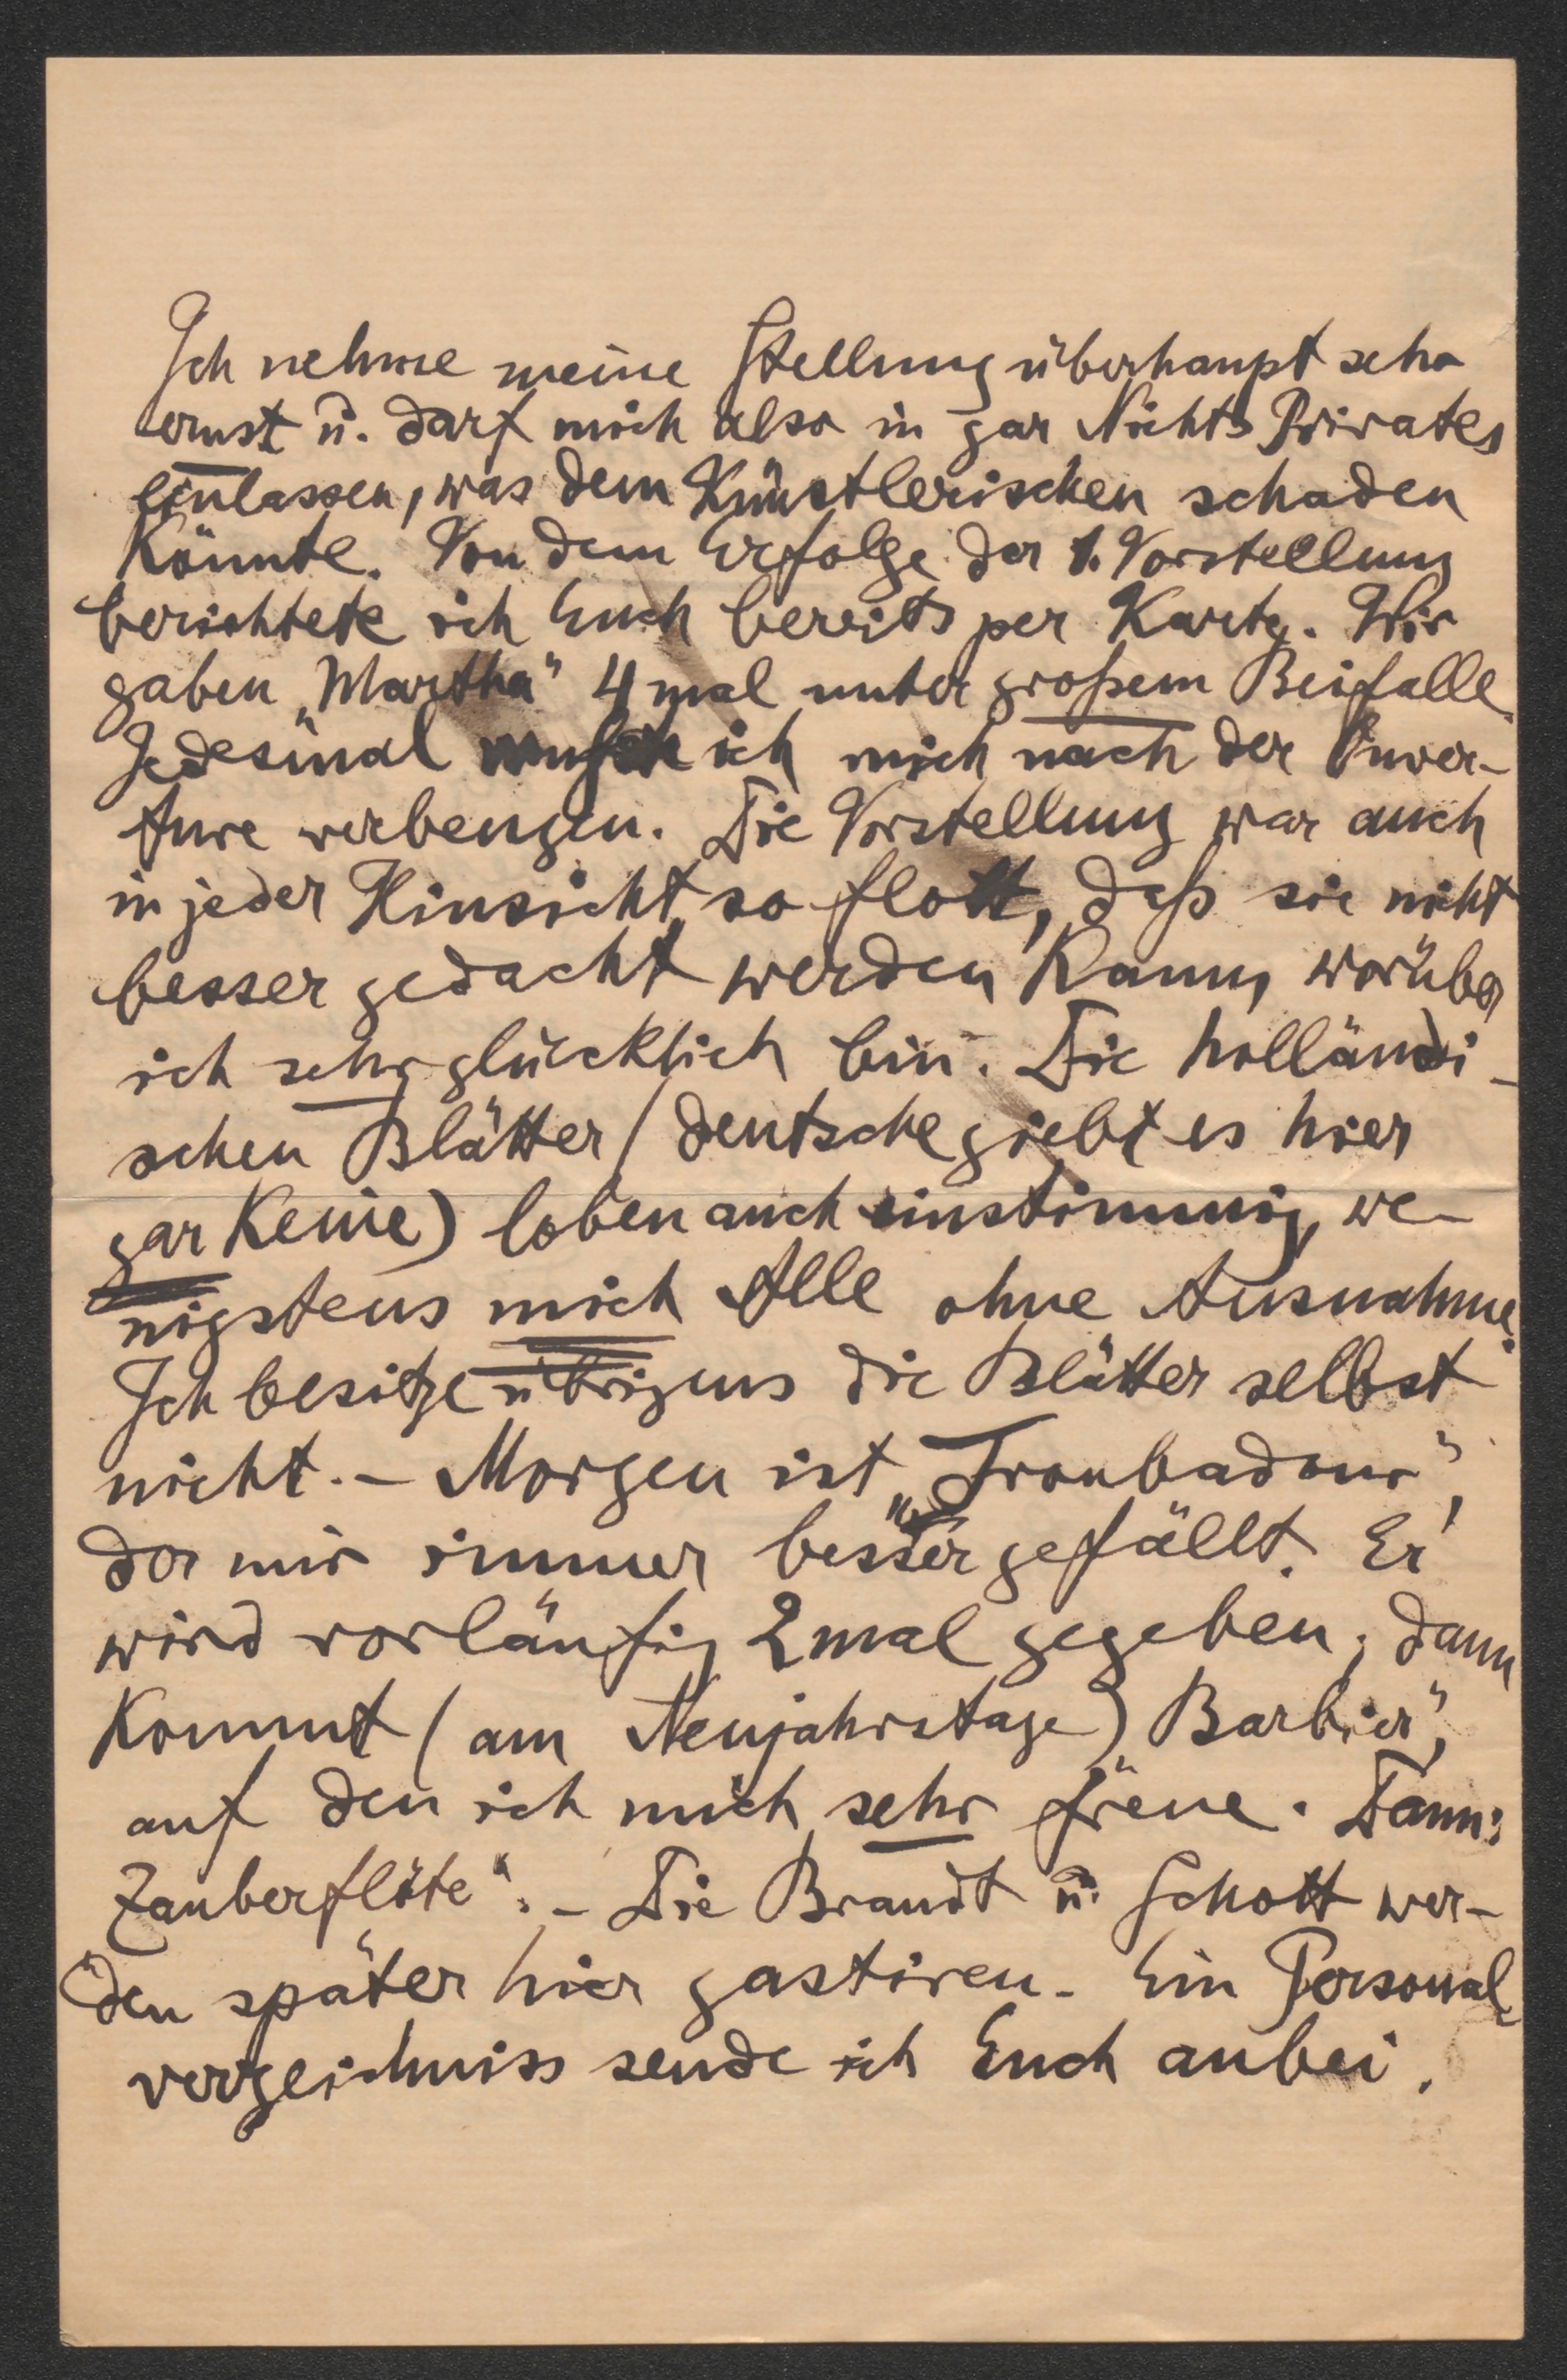 Ich nehme meine Stellung überhaupt sehr
ernst u. darf mich also in gar Nichts Privates
einlassen, was dem Künstlerischen schaden
könnte. Von dem Erfolge der 1. Vorstellung
berichtete ich Euch bereits per Karte. Wir
gaben „Martha" 4 mal unter großem Beifalle.
Jedesmal mußte ich mich nach der Ouver-
ture verbeugen. Die Vorstellung war auch
in jeder Hinsicht so flott, daß sie nicht
besser gedacht werden kann, worüber
ich sehr glücklich bin. Die holländi-
schen Blätter (deutsche giebt es hier
gar keine) loben auch einstimmig, we-
nigstens mich Alle ohne Ausnahme.
Ich besitze übrigens die Blätter selbst
nicht. – Morgen ist „Troubadour",
der mir immer besser gefällt. Er
wird vorläufig 2 mal gegeben; dann
kommt (am Neujahrstage) „Barbier",
auf den ich mich sehr freue. Dann:
Zauberflöte". – Die Brandt u. Schott wer-
den später hier gastiren. Ein Personal-
verzeichniss sende ich Euch anbei.